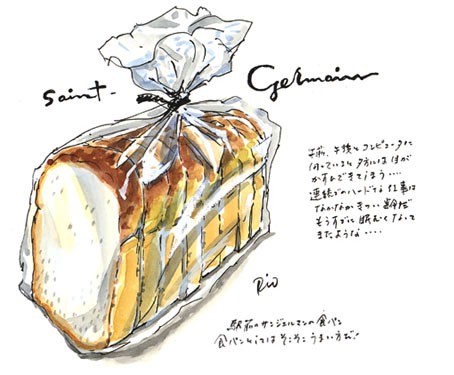 Saint-Germain
午前、午後とコンピュータに
向っていると夕方には目が
かすんできてしまう....
連続でのハードな仕事は
なかなかきつい年齢だ
もうすでに眠たくなって
きたような....
Rio
駅前のサンジェルマンの食パン
食パンとしてはそこそこうまい方だ!